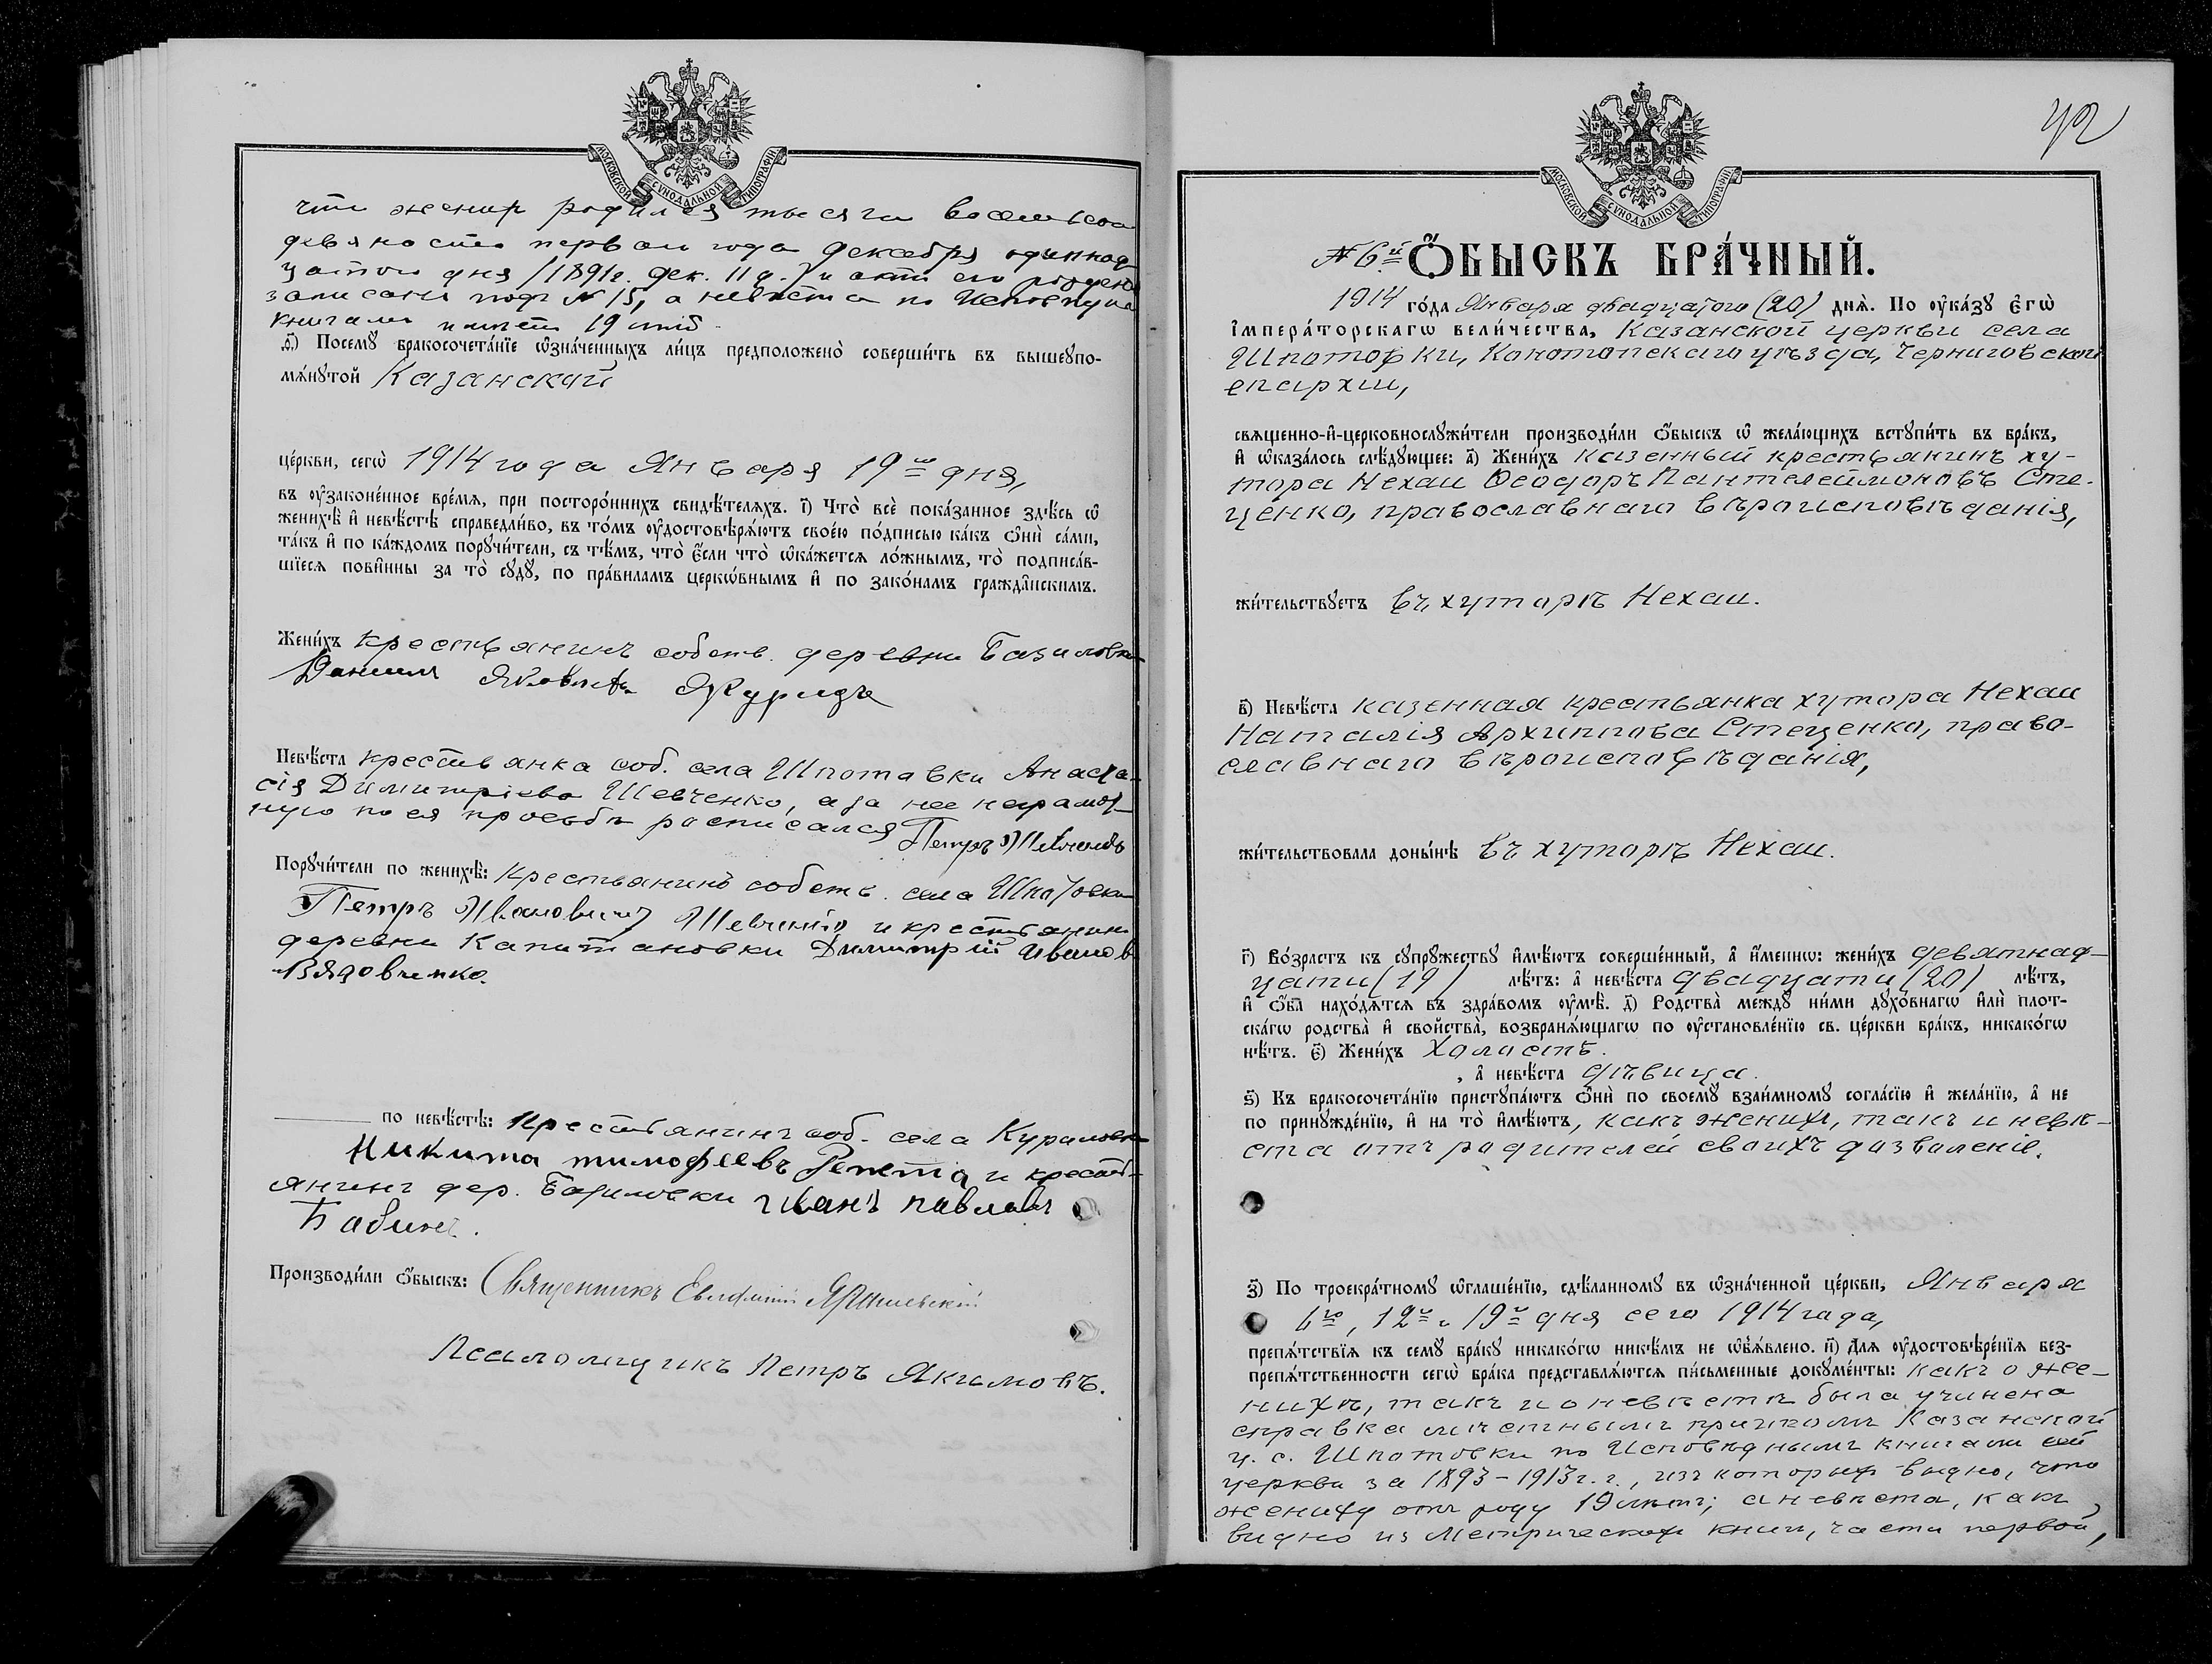 МОСКОВСКОЙ СУНОДАЛЬНОЙ ТИПОГРАФІИ
что женихъ родился тысяча восемьсот
девяносто первом года декабря одиннад
цатого дня /1891 г. дек. 11 д./ и актъ его рожден
записанъ подъ № 15, а невѣста по Исповѣдн
книгамъ имѣетъ 19 лѣтъ
д҃і) Посемꙋ бракосочета́нїе ѡ҆зна́ченныхъ ли́цъ предположено̀ соверши́ть въ вышеꙋпо-
мѧ́нꙋтой Казанской
це́ркви, сегѡ̀ 1914 года Января 19го дня,
въ ᲂу҆законе́нное вре́мѧ, при посторо́ннихъ свидѣ́телѧхъ. і҃) Что̀ всѐ пока́занное здѣ́сь ѡ҆
женихѣ̀ и҆ невѣ́стѣ справедли́во, въ то́мъ ᲂу҆достовѣрѧ́ютъ свое́ю по́дписью ка́къ ѻ҆нѝ са́ми,
та́къ и҆ по ка́ждомъ порꙋчи́тели, съ тѣ́мъ, что̀ є҆́сли что̀ ѡ҆ка́жетсѧ ло́жнымъ, то̀ подписа́в-
шїесѧ пови́нны за то̀ сꙋдꙋ̀, по пра́виламъ церкѡ́внымъ и҆ по зако́намъ гражда́нскимъ.
Жени́хъ крестьянинъ собств. деревни Базиловки
Даніилъ Яковлевъ Журидъ
Невѣ́ста крестьянка соб. села Шпотовки Анаста-
сія Димитріева Шевченко, а за нее неграмот-
ную по ея просьбѣ росписался Петръ Шевченко
Порꙋчи́тели по женихѣ̀: Крестьянинъ собств. села Шпотовки
Петръ Ивановичъ Шевченко и крестьянин
деревни Капитановки Димитрій Иванов
Вядовченко.
по невѣ́стѣ: Крестьянинъ соб. села Куриловки
Никита тимофеевъ Репета и кресть-
янинъ дер. Базиловки Иванъ павлавъ
Бабичъ.
Производи́ли ѻ҆́быскъ: Священникъ Евфимій Ярошевскій
Псаломщикъ Петръ Якимовъ.
42
МОСКОВСКОЙ СУНОДАЛЬНОЙ ТИПОГРАФІИ
№ 6й Ѻ҆́БЫСКЪ БРА́ЧНЫЙ.
1914 го́да Января двадцатого (20) днѧ̀. По ᲂу҆ка́зꙋ є҆гѡ̀
і҆мпера́торскагѡ вели́чества, Казанской церкви села
Шпотовки, Конотопскаго уѣзда, Черниговской
епархіи,
свѧщенно-и҆-церковнослꙋжи́тели производи́ли ѻ҆́быскъ ѡ҆ жела́ющихъ встꙋпи́ть въ бра́къ,
и҆ ѡ҆каза́лось слѣ́дꙋющее: а҃) Жени́хъ казенный крестьянинъ ху-
тора Нехаи Ѳеодоръ Пантелеймоновъ Сте-
ценко, православнаго вѣроисповѣданія,
жи́тельствꙋетъ въ хуторѣ Нехаи.
в҃) Невѣ́ста казенная крестьянка хутора Нехаи
Наталія Архиппова Стеценко, право-
славнаго вѣроисповѣданія,
жи́тельствовала доны́нѣ въ хуторѣ Нехаи.
г҃) Во́зрастъ къ сꙋпрꙋ́жествꙋ и҆мѣ́ютъ соверше́нный, а҆ и҆́меннѡ: жени́хъ девятнад-
цати (19) лѣ́тъ: а҆ невѣ́ста двадцати (20) лѣ́тъ,
и҆ ѻ҆́ба нахо́дѧтсѧ въ здра́вомъ ᲂу҆мѣ̀. д҃) Родства̀ междꙋ̀ ни́ми дꙋхо́внагѡ и҆лѝ плот-
ска́гѡ родства̀ и҆ сво́йства̀, возбранѧ́ющагѡ по ᲂу҆становле́нїю св. це́ркви бра́къ, никако́гѡ
нѣ́тъ. є҃) Жени́хъ холостъ.
, а҆ невѣ́ста дѣвица.
ѕ҃) Къ бракосочета́нїю пристꙋпа́ютъ ѻ҆нѝ по своемꙋ̀ взаи́мномꙋ согла́сїю и҆ жела́нїю, а҆ не
по принꙋжде́нїю, и҆ на то̀ и҆мѣ́ютъ, какъ женихъ, такъ и невѣ-
ста отъ родителей своихъ дозволеніе.
з҃) По троекра́тномꙋ ѡ҆глаше́нїю, сдѣ́ланномꙋ въ ѡ҆зна́ченной це́ркви, Января
6го, 12го и 19го дня сего 1914 года,
препѧ́тствїѧ къ семꙋ̀ бра́кꙋ никако́гѡ никѣ́мъ не ѡ҆б̾ѧ́влено. и҃) Длѧ̀ ᲂу҆достовѣре́нїѧ без-
препѧ́тственности сегѡ̀ бра́ка представлѧ́ютсѧ пи́сьменные докꙋме́нты: какъ о же-
нихѣ, такъ и о невѣстѣ была учинена
справка мѣстнымъ причтомъ Казанской
ц. с. Шпотовки по Исповѣднымъ книгамъ сей
церкви за 1893-1913 г.г., изъ которыхъ видно, что
жениху отъ роду 19 лѣтъ; а невѣста, какъ
видно из Метрической книги, части первой,